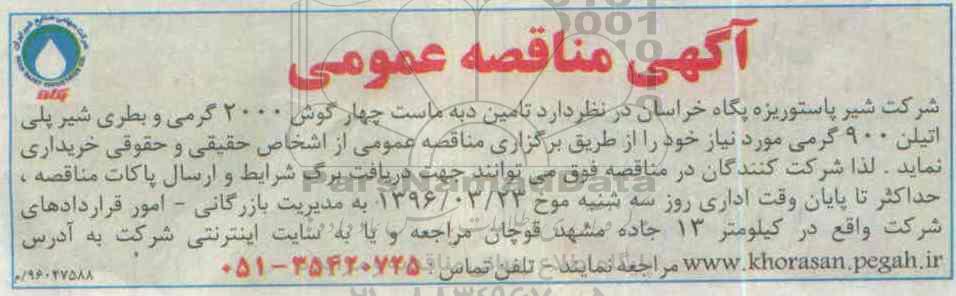 آگهی مناقصه عمومی
شرکت شیر پاستوریزه پگاه خراسان در نظر دارد تامین دبه ماست چهار گوش ۲۰۰۰ گرمی و بطری شیر پلی
اتیلن ۹۰۰ گرمی مورد نیاز خود را از طریق برگزاری مناقصه عمومی از اشخاص حقیقی و حقوقی خریداری
نماید . لذا شرکت کنندگان در مناقصه فوق می توانند جهت دریافت برگ شرایط و ارسال پاکات مناقصه ،
حداکثر تا پایان وقت اداری روز سه شنبه مورخ ۱۳۹۶/۰۳/۲۳ به مدیریت بازرگانی - امور قراردادهای
شرکت واقع در کیلومتر ۱۳ جاده مشهد قوچان مراجعه و یا به سایت اینترنتی شرکت به آدرس
www.khorasan.pegah.ir مراجعه نمایند - تلفن تماس : ۳۵۴۲۰۷۲۵-۰۵۱
۹۶۰۲۷۵۸۸/م
پگاه
ParsNamadData